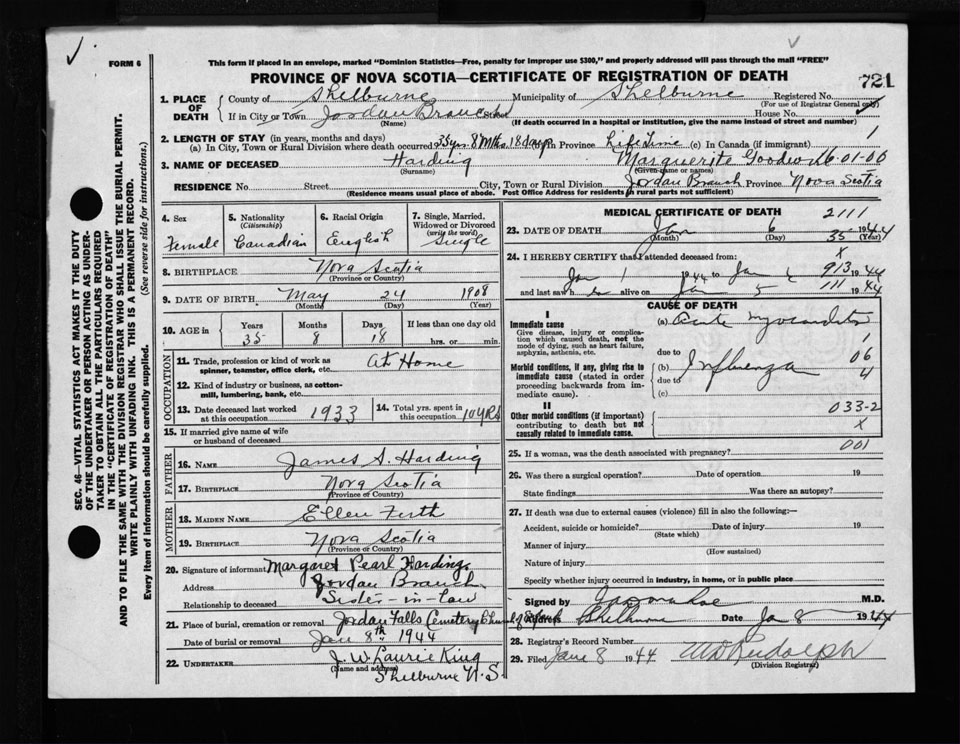 FORM 6
This form if placed in an envelope, marked "Dominion Statistics—Free, penalty for improper use $300," and properly addressed will pass through the mail "FREE"
PROVINCE OF NOVA SCOTIA—CERTIFICATE OF REGISTRATION OF DEATH
721
1. PLACE OF DEATH
County of Shelburne Municipality of Shelburne Registered No.
(For use of Registrar General only)
If in City or Town Jordan Branch Street House No.
(Name) (If death occurred in a hospital or institution, give the name instead of street and number)
2. LENGTH OF STAY (in years, months and days)
(a) In City, Town or Rural Division where death occurred 35 yrs 8 Mths 18 days In Province Life Time (c) In Canada (if immigrant) 1
3. NAME OF DECEASED Harding Marguerite 06-01-00
(Surname) (Given name or names)
RESIDENCE No. Street City, Town or Rural Division Jordan Branch Province Nova Scotia
(Residence means usual place of abode. Post Office Address for residents in rural parts not sufficient)
4. Sex Female
5. Nationality (Citizenship) Canadian
6. Racial Origin English
7. Single, Married, Widowed or Divorced (write the word) Single
8. BIRTHPLACE Nova Scotia
(Province or Country)
9. DATE OF BIRTH May 24 1908
(Month) (Day) (Year)
10. AGE in Years Months Days If less than one day old
35 8 18 hrs. or min.
OCCUPATION
11. Trade, profession or kind of work as spinner, teamster, office clerk, etc. At Home
12. Kind of industry or business, as cotton-mill, lumbering, bank, etc.
13. Date deceased last worked at this occupation 1933
14. Total yrs. spent in this occupation 10 yrs
15. If married give name of wife or husband of deceased
FATHER
16. NAME James S. Harding
17. BIRTHPLACE Nova Scotia
(Province or Country)
MOTHER
18. MAIDEN NAME Ellen Firth
19. BIRTHPLACE Nova Scotia
(Province or Country)
20. Signature of informant Margaret Pearl Harding
Address Jordan Branch
Relationship to deceased Sister-in-law
21. Place of burial, cremation or removal Jordan Falls Cemetery
Date of burial or removal Jan 8th 1944
22. UNDERTAKER J. W. Laurie King
(Name and address) Shelburne N.S.
MEDICAL CERTIFICATE OF DEATH 2111
23. DATE OF DEATH Jan 6 35 1944
(Month) (Day) (Year)
24. I HEREBY CERTIFY that I attended deceased from: X
Jan 1 1944 to Jan 6 913 1944
and last saw h alive on Jan 5 111 1944
CAUSE OF DEATH
I
Immediate cause
Give disease, injury or complication which caused death, not the mode of dying, such as heart failure, asphyxia, asthenia, etc.
(a) Acute myocarditis
due to 1
Morbid conditions, if any, giving rise to immediate cause (stated in order proceeding backwards from immediate cause).
(b) Influenza 06
due to 4
(c)
II
Other morbid conditions (if important) contributing to death but not causally related to immediate cause.
033-2
X
25. If a woman, was the death associated with pregnancy? 001
26. Was there a surgical operation? Date of operation 19
State findings Was there an autopsy?
27. If death was due to external causes (violence) fill in also the following:—
Accident, suicide or homicide? Date of injury 19
(State which)
Manner of injury
(How sustained)
Nature of injury
Specify whether injury occurred in industry, in home, or in public place
Signed by M.D.
Address Shelburne Date Jan 8 1944
28. Registrar's Record Number
29. Filed Jan 8 1944 Rudolph
(Division Registrar)
SEC. 46—VITAL STATISTICS ACT MAKES IT THE DUTY
OF THE UNDERTAKER OR PERSON ACTING AS UNDER-
TAKER TO OBTAIN ALL THE PARTICULARS REQUIRED
IN THE "CERTIFICATE OF REGISTRATION OF DEATH"
AND TO FILE THE SAME WITH THE DIVISION REGISTRAR WHO SHALL ISSUE THE BURIAL PERMIT.
WRITE PLAINLY WITH UNFADING INK. THIS IS A PERMANENT RECORD.
Every item of information should be carefully supplied. (See reverse side for instructions.)